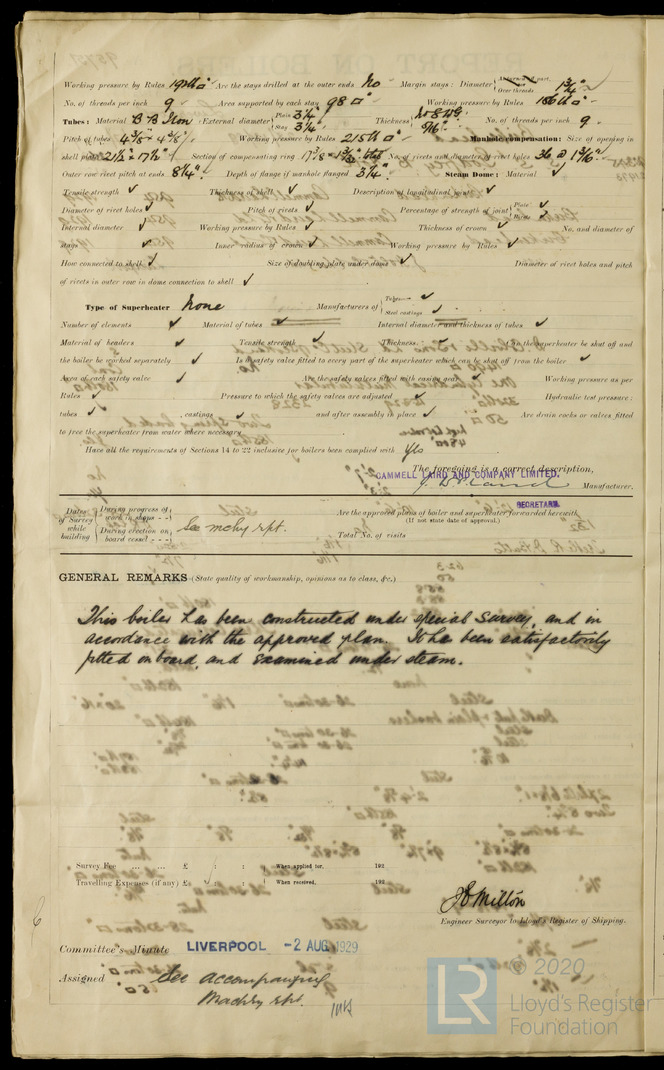 Working pressure by Rules 192 lb □" Are the stays drilled at the outer ends No Margin stays: Diameter {At turned off part, or Over threads 1 3/4"
No. of threads per inch 9 Area supported by each stay 98 □" Working pressure by Rules 186 lb □"
Tubes: Material B B Iron External diameter {Plain 3 1/4" Stay 3 1/4" Thickness {No 8 WG 5/16" No. of threads per inch 9
Pitch of tubes 4 5/8" x 4 5/8" Working pressure by Rules 215 lb □" Manhole compensation: Size of opening in
shell plate 21 1/2" x 17 1/2" Section of compensating ring No. of rivets and diameter of rivet holes 36 @ 1 3/16"
Outer row rivet pitch at ends 8 1/4" Depth of flange if manhole flanged 3 1/4" Steam Dome: Material ✓
Tensile strength ✓ Thickness of shell ✓ Description of longitudinal joint ✓
Diameter of rivet holes ✓ Pitch of rivets ✓ Percentage of strength of joint {Plate ✓ Rivets ✓
Internal diameter ✓ Working pressure by Rules ✓ Thickness of crown ✓ No. and diameter of
stays ✓ Inner radius of crown ✓ Working pressure by Rules ✓
How connected to shell ✓ Size of doubling plate under dome ✓ Diameter of rivet holes and pitch
of rivets in outer row in dome connection to shell ✓
Type of Superheater None Manufacturers of {Tubes ✓ Steel castings ✓
Number of elements ✓ Material of tubes ✓ Internal diameter and thickness of tubes ✓
Material of headers ✓ Tensile strength ✓ Thickness ✓ Can the superheater be shut off and
the boiler be worked separately ✓ Is a safety valve fitted to every part of the superheater which can be shut off from the boiler ✓
Area of each safety valve ✓ Are the safety valves fitted with easing gear ✓ Working pressure as per
Rules ✓ Pressure to which the safety valves are adjusted ✓ Hydraulic test pressure:
tubes ✓ , castings ✓ and after assembly in place ✓ Are drain cocks or valves fitted
to free the superheater from water where necessary
Have all the requirements of Sections 14 to 22 inclusive for boilers been complied with Yes
The foregoing is a correct description,
CAMMELL LAIRD AND COMPANY LIMITED.
Manufacturer.
SECRETARY.
Dates of Survey while building {During progress of work in shops - - {During erection on board vessel - - - See mchy rpt. Are the approved plans of boiler and superheater forwarded herewith
(If not state date of approval.)
Total No. of visits
GENERAL REMARKS (State quality of workmanship, opinions as to class, &c.)
This boiler has been constructed under special survey, and in
accordance with the approved plan. It has been satisfactorily
fitted on board, and examined under steam.
Survey Fee ... ... £ : : {When applied for, 192
Travelling Expenses (if any) £ : : {When received, 192
J E Milton
Engineer Surveyor to Lloyd's Register of Shipping.
6
Committee's Minute LIVERPOOL -2 AUG 1929
Assigned See accompanying
Machy rpt.
© 2020
LR Lloyd's Register
Foundation